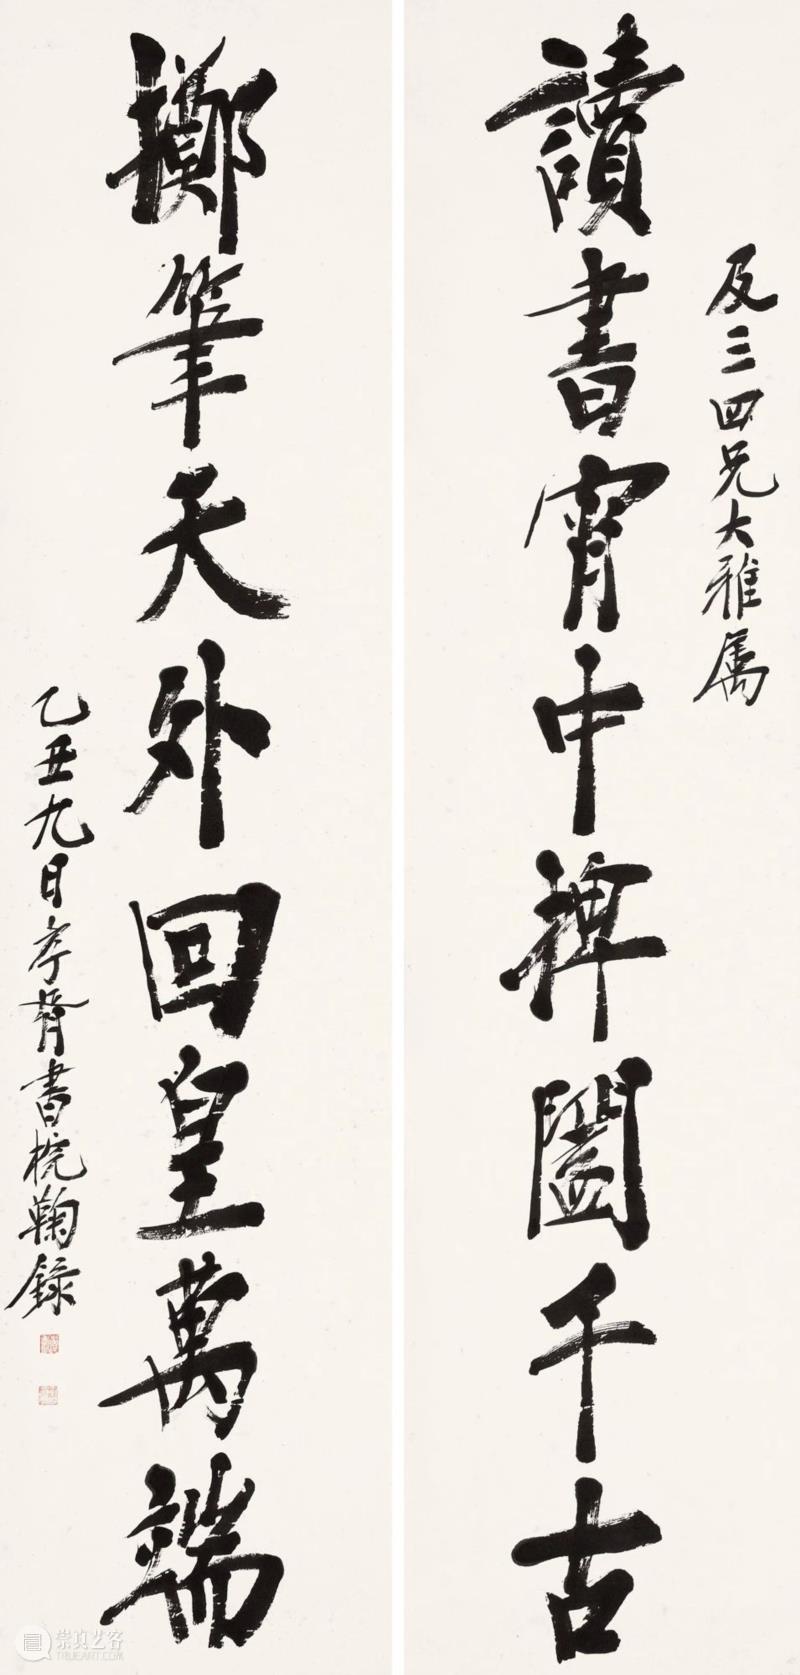 及三四兄大雅属
讀書宵中捭闔千古
擲筆天外回皇萬端
乙丑九日孝胥書梡鞠錄
崇真艺客
TRUEART.COM